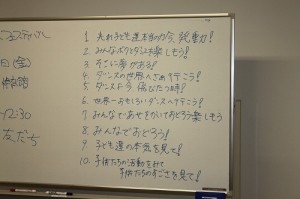 フェスティバル
日(金)
12:30
友だち
1. 子ども達本当の力今、発動!
2. みんなボクとダンスを楽しもう!
3. そこに夢がある!
4. ダンスの世界へさあ行こう!
5. ダンスよ今、伝びたつ時!
6. 世界一おもしろいダンスへ行こう!
7. みんなであせをかいておどろう楽しもう
8. みんなでおどろう!
9. 子ども達の本気を見て!
10. 子供たちの活動をみて
子供たちのすごさを見て!